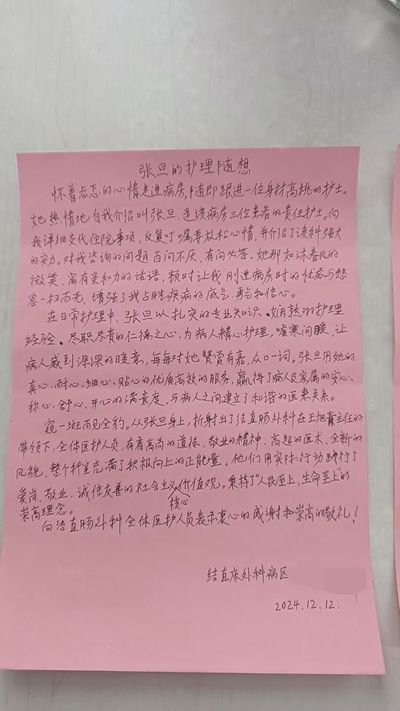 张旦的护理随想
怀着忐忑的心情走进病房，随即跟进一位身材高挑的护士。
她热情地自我介绍叫张旦，是该病房三位患者的责任护士。向
我详细交代住院事项，反复叮嘱要放松心情，并介绍了该科强大
的实力。对我咨询的问题百问不厌，有问必答。她那如沐春风的
微笑，富有亲和力的话语，顿时让我刚进病房时的忧虑与愁
容一扫而光，增强了我占胜疾病的底气、勇气和信心。
在日常护理中，张旦以扎实的专业知识、娴熟的护理
经验、尽职尽责的仁德之心，为病人精心护理，嘘寒问暖，让
病人感到深深的暖意，每每对她赞赏有嘉，众口一词，张旦用她的
真心、耐心、细心、贴心的优质高效的服务，赢得了病人及家属的安心、
称心、舒心、开心的满意度，与病人之间建立了和谐的医患关系。
窥一斑而见全豹。从张旦身上，折射出了结直肠外科在王旭青主任的
带领下，全体医护人员，有着高尚的道德、敬业的精神、高超的医术、全新的
风貌，整个科室充满了积极向上的正能量。他们用实际行动践行了
爱岗、敬业、诚信友善的社会主义核心价值观。秉持了“人民至上，生命至上”的
崇高理念。
向结直肠外科全体医护人员表示衷心的感谢和崇高的敬礼！
结直床外科病区
2024.12.12.